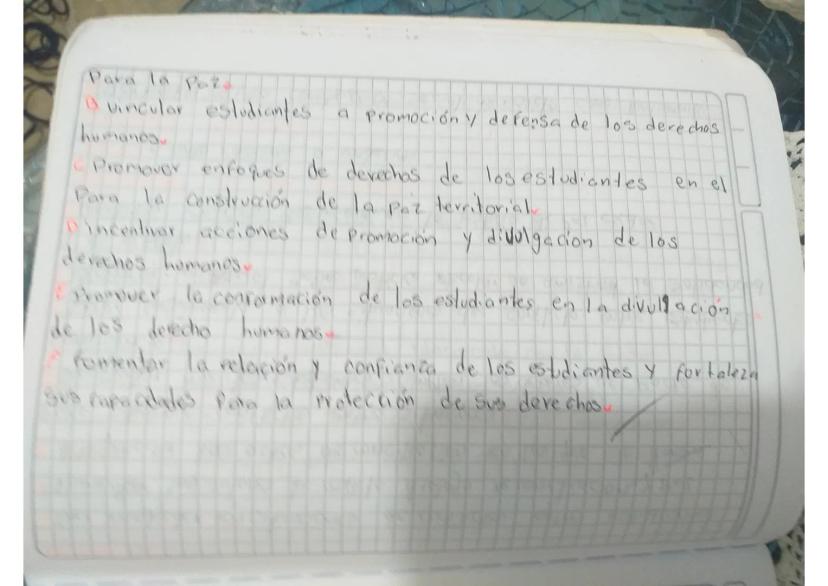 Para la Paz.
B vincular estudiantes a promoción y defensa de los derechos
humanos.
C Promover enfoques de derechos de los estudiantes en el
Para la construcción de la paz territorial.
D incentivar acciones de promoción y divulgación de los
derechos humanos.
E Promover la conformación de los estudiantes en la divulgación
de los derecho humanos.
F fomentar la relación y confianza de los estdiantes y fortaleza
sus capacidades para la protección de sus derechos.